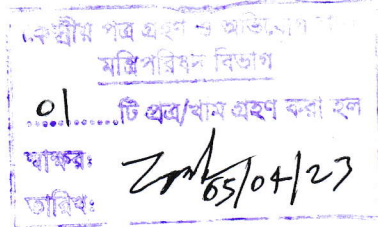 কেন্দ্রীয় পত্র গ্রহণ ও অভিযোগ
মন্ত্রিপরিষদ বিভাগ
01 টি পত্র/খাম গ্রহণ করা হল
স্বাক্ষর:
05/04/23
তারিখ: